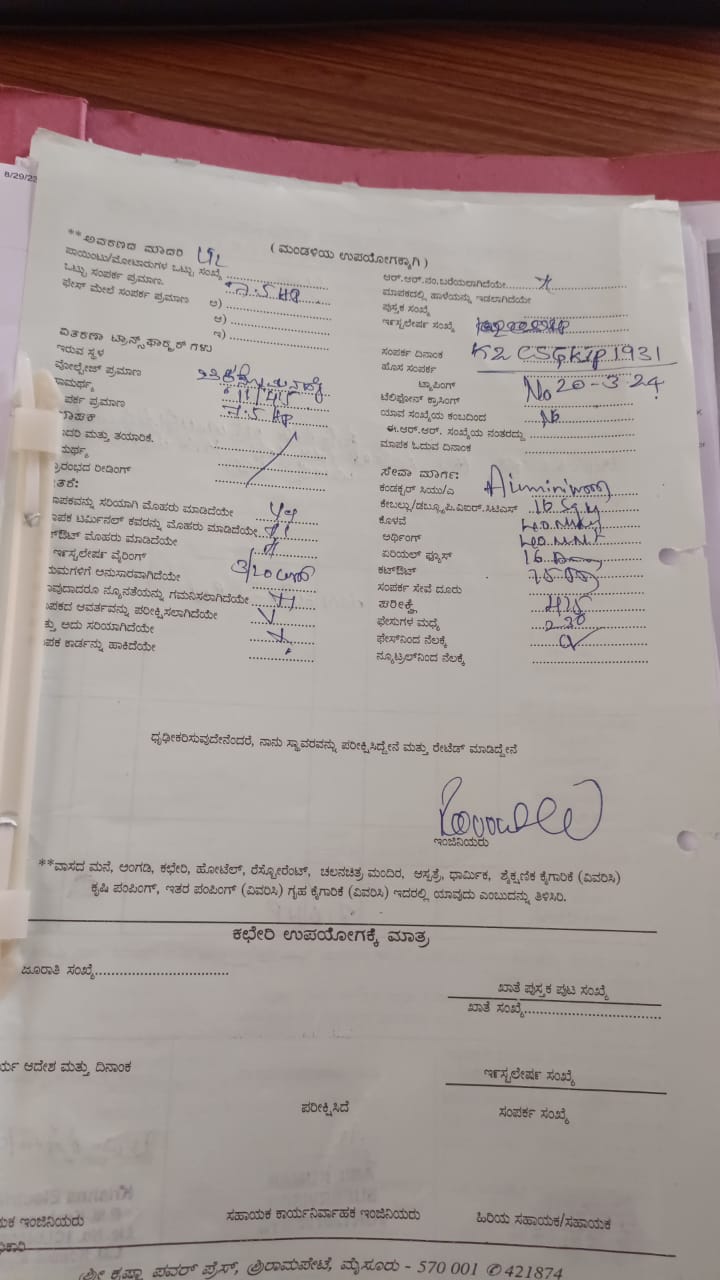 8/29/22
( ಮಂಡಳಿಯ ಉಪಯೋಗಕ್ಕಾಗಿ )
**ಅವಕಣದ ಮಾದರಿ
ಪಾಯಿಂಟು/ಮೋಟಾರುಗಳ ಒಟ್ಟು ಸಂಖ್ಯೆ
ಒಟ್ಟು ಸಂಪರ್ಕ ಪ್ರಮಾಣ. 7.5 HP
ಫೇಸ್ ಮೇಲೆ ಸಂಪರ್ಕ ಪ್ರಮಾಣ ಅ)
ಆ)
ಇ)
ವಿತರಣಾ ಟ್ರಾನ್ಸ್‌ಫಾರ್ಮರ್ ಗಳು
ಇರುವ ಸ್ಥಳ
ವೋಲ್ಟೇಜ್ ಪ್ರಮಾಣ
ಸಾಮರ್ಥ್ಯ
ಪರ್ಕ ಪ್ರಮಾಣ 7.5 HP
ಮಾಪಕ
ಾದರಿ ಮತ್ತು ತಯಾರಿಕೆ.
ಮರ್ಥ್ಯ
್ರಾರಂಭದ ರೀಡಿಂಗ್
ಾಪಕವನ್ನು ಸರಿಯಾಗಿ ಮೊಹರು ಮಾಡಿದೆಯೇ
ಾಪಕ ಟರ್ಮಿನಲ್ ಕವರನ್ನು ಮೊಹರು ಮಾಡಿದೆಯೇ
ಔಟ್ ಮೊಹರು ಮಾಡಿದೆಯೇ
ಇನ್ಸ್ಟಲೇಷನ್ ವೈರಿಂಗ್
ಯಮಗಳಿಗೆ ಅನುಸಾರವಾಗಿದೆಯೇ
ಾವುದಾದರೂ ನ್ಯೂನತೆಯನ್ನು ಗಮನಿಸಲಾಗಿದೆಯೇ
ಾಪಕದ ಆವರ್ತವನ್ನು ಪರೀಕ್ಷಿಸಲಾಗಿದೆಯೇ
ತ್ತು ಅದು ಸರಿಯಾಗಿದೆಯೇ
ಾಪಕ ಕಾರ್ಡನ್ನು ಹಾಕಿದೆಯೇ
ಆರ್.ಆರ್.ನಂ.ಬರೆಯಲಾಗಿದೆಯೇ
ಮಾಪಕದಲ್ಲಿ ಹಾಳೆಯನ್ನು ಇಡಲಾಗಿದೆಯೇ
ಪುಸ್ತಕ ಸಂಖ್ಯೆ
ಇನ್ಸ್ಟಲೇಷನ್ ಸಂಖ್ಯೆ
K2 CSGKIP1931
ಸಂಪರ್ಕ ದಿನಾಂಕ
ಹೊಸ ಸಂಪರ್ಕ
ಟ್ಯಾಪಿಂಗ್ No 20-3-24
ಟೆಲಿಫೋನ್ ಕ್ರಾಸಿಂಗ್
ಯಾವ ಸಂಖ್ಯೆಯ ಕಂಬದಿಂದ No
ಈ.ಆರ್.ಆರ್. ಸಂಖ್ಯೆಯ ನಂತರದ್ದು
ಮಾಪಕ ಓದುವ ದಿನಾಂಕ
ಸೇವಾ ಮಾರ್ಗ:
ಕಂಡಕ್ಟರ್ ಸಿಯು/ಎ
ಕೇಬಲ್ಲು/ಡಬ್ಲ್ಯೂ.ಪಿ.ಐಆರ್.ಸಿಟಿಎಸ್
ಕೊಳವೆ
ಅರ್ಥಿಂಗ್
ಏರಿಯಲ್ ಫ್ಯೂಸ್
ಕಟ್‌ಔಟ್
ಸಂಪರ್ಕ ಸೇವೆ ದೂರು
ಪರೀಕ್ಷೆ
ಫೇಸುಗಳ ಮಧ್ಯೆ
ಫೇಸ್‌ನಿಂದ ನೆಲಕ್ಕೆ
ನ್ಯೂಟ್ರಲ್‌ನಿಂದ ನೆಲಕ್ಕೆ
ಧೃಢೀಕರಿಸುವುದೇನೆಂದರೆ, ನಾನು ಸ್ಥಾವರವನ್ನು ಪರೀಕ್ಷಿಸಿದ್ದೇನೆ ಮತ್ತು ರೇಟೆಡ್ ಮಾಡಿದ್ದೇನೆ
ಇಂಜಿನಿಯರು
**ವಾಸದ ಮನೆ, ಅಂಗಡಿ, ಕಛೇರಿ, ಹೋಟೆಲ್, ರೆಸ್ಟೋರೆಂಟ್, ಚಲನಚಿತ್ರ ಮಂದಿರ, ಆಸ್ಪತ್ರೆ, ಧಾರ್ಮಿಕ, ಶೈಕ್ಷಣಿಕ ಕೈಗಾರಿಕೆ (ವಿವರಿಸಿ)
ಕೃಷಿ ಪಂಪಿಂಗ್, ಇತರ ಪಂಪಿಂಗ್ (ವಿವರಿಸಿ) ಗೃಹ ಕೈಗಾರಿಕೆ (ವಿವರಿಸಿ) ಇದರಲ್ಲಿ ಯಾವುದು ಎಂಬುದನ್ನು ತಿಳಿಸಿರಿ.
ಕಛೇರಿ ಉಪಯೋಗಕ್ಕೆ ಮಾತ್ರ
ಜೂರಾತಿ ಸಂಖ್ಯೆ
ಖಾತೆ ಪುಸ್ತಕ ಪುಟ ಸಂಖ್ಯೆ
ಖಾತೆ ಸಂಖ್ಯೆ
ರ್ಯ ಆದೇಶ ಮತ್ತು ದಿನಾಂಕ
ಇನ್ಸ್ಟಲೇಷನ್ ಸಂಖ್ಯೆ
ಪರೀಕ್ಷಿಸಿದೆ
ಸಂಪರ್ಕ ಸಂಖ್ಯೆ
ಯಕ ಇಂಜಿನಿಯರು
ಸಹಾಯಕ ಕಾರ್ಯನಿರ್ವಾಹಕ ಇಂಜಿನಿಯರು
ಹಿರಿಯ ಸಹಾಯಕ/ಸಹಾಯಕ
ಧಿಕಾರಿ
ಶ್ರೀ ಕೃಷ್ಣಾ ಪವರ್ ಪ್ರೆಸ್, ಶ್ರೀರಾಮಪೇಟೆ, ಮೈಸೂರು - 570 001 ✆421874